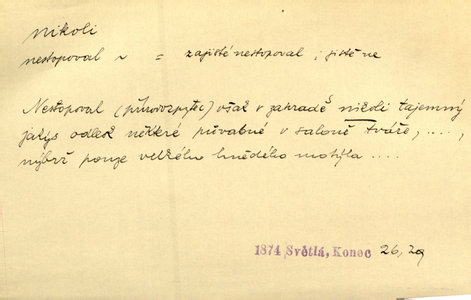 nikoli
nestopoval ~ = zajisté nestopoval; jistě ne
Nestopoval (přírodozpytec) však v zahradě nikoli tajemný
jakýs odlesk některé půvabné v saloně tváře, ....,
nýbrž pouze velkého hnědého motýla ....
1874 Světlá, Konec 26, 29